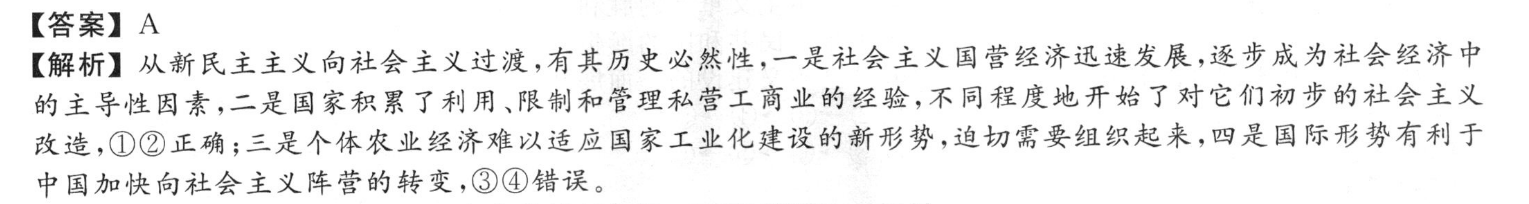 【答案】A
【解析】从新民主主义向社会主义过渡,有其历史必然性,一是社会主义国营经济迅速发展,逐步成为社会经济中
的主导性因素,二是国家积累了利用、限制和管理私营工商业的经验,不同程度地开始了对它们初步的社会主义
改造,①②正确;三是个体农业经济难以适应国家工业化建设的新形势,迫切需要组织起来,四是国际形势有利于
中国加快向社会主义阵营的转变,③④错误。